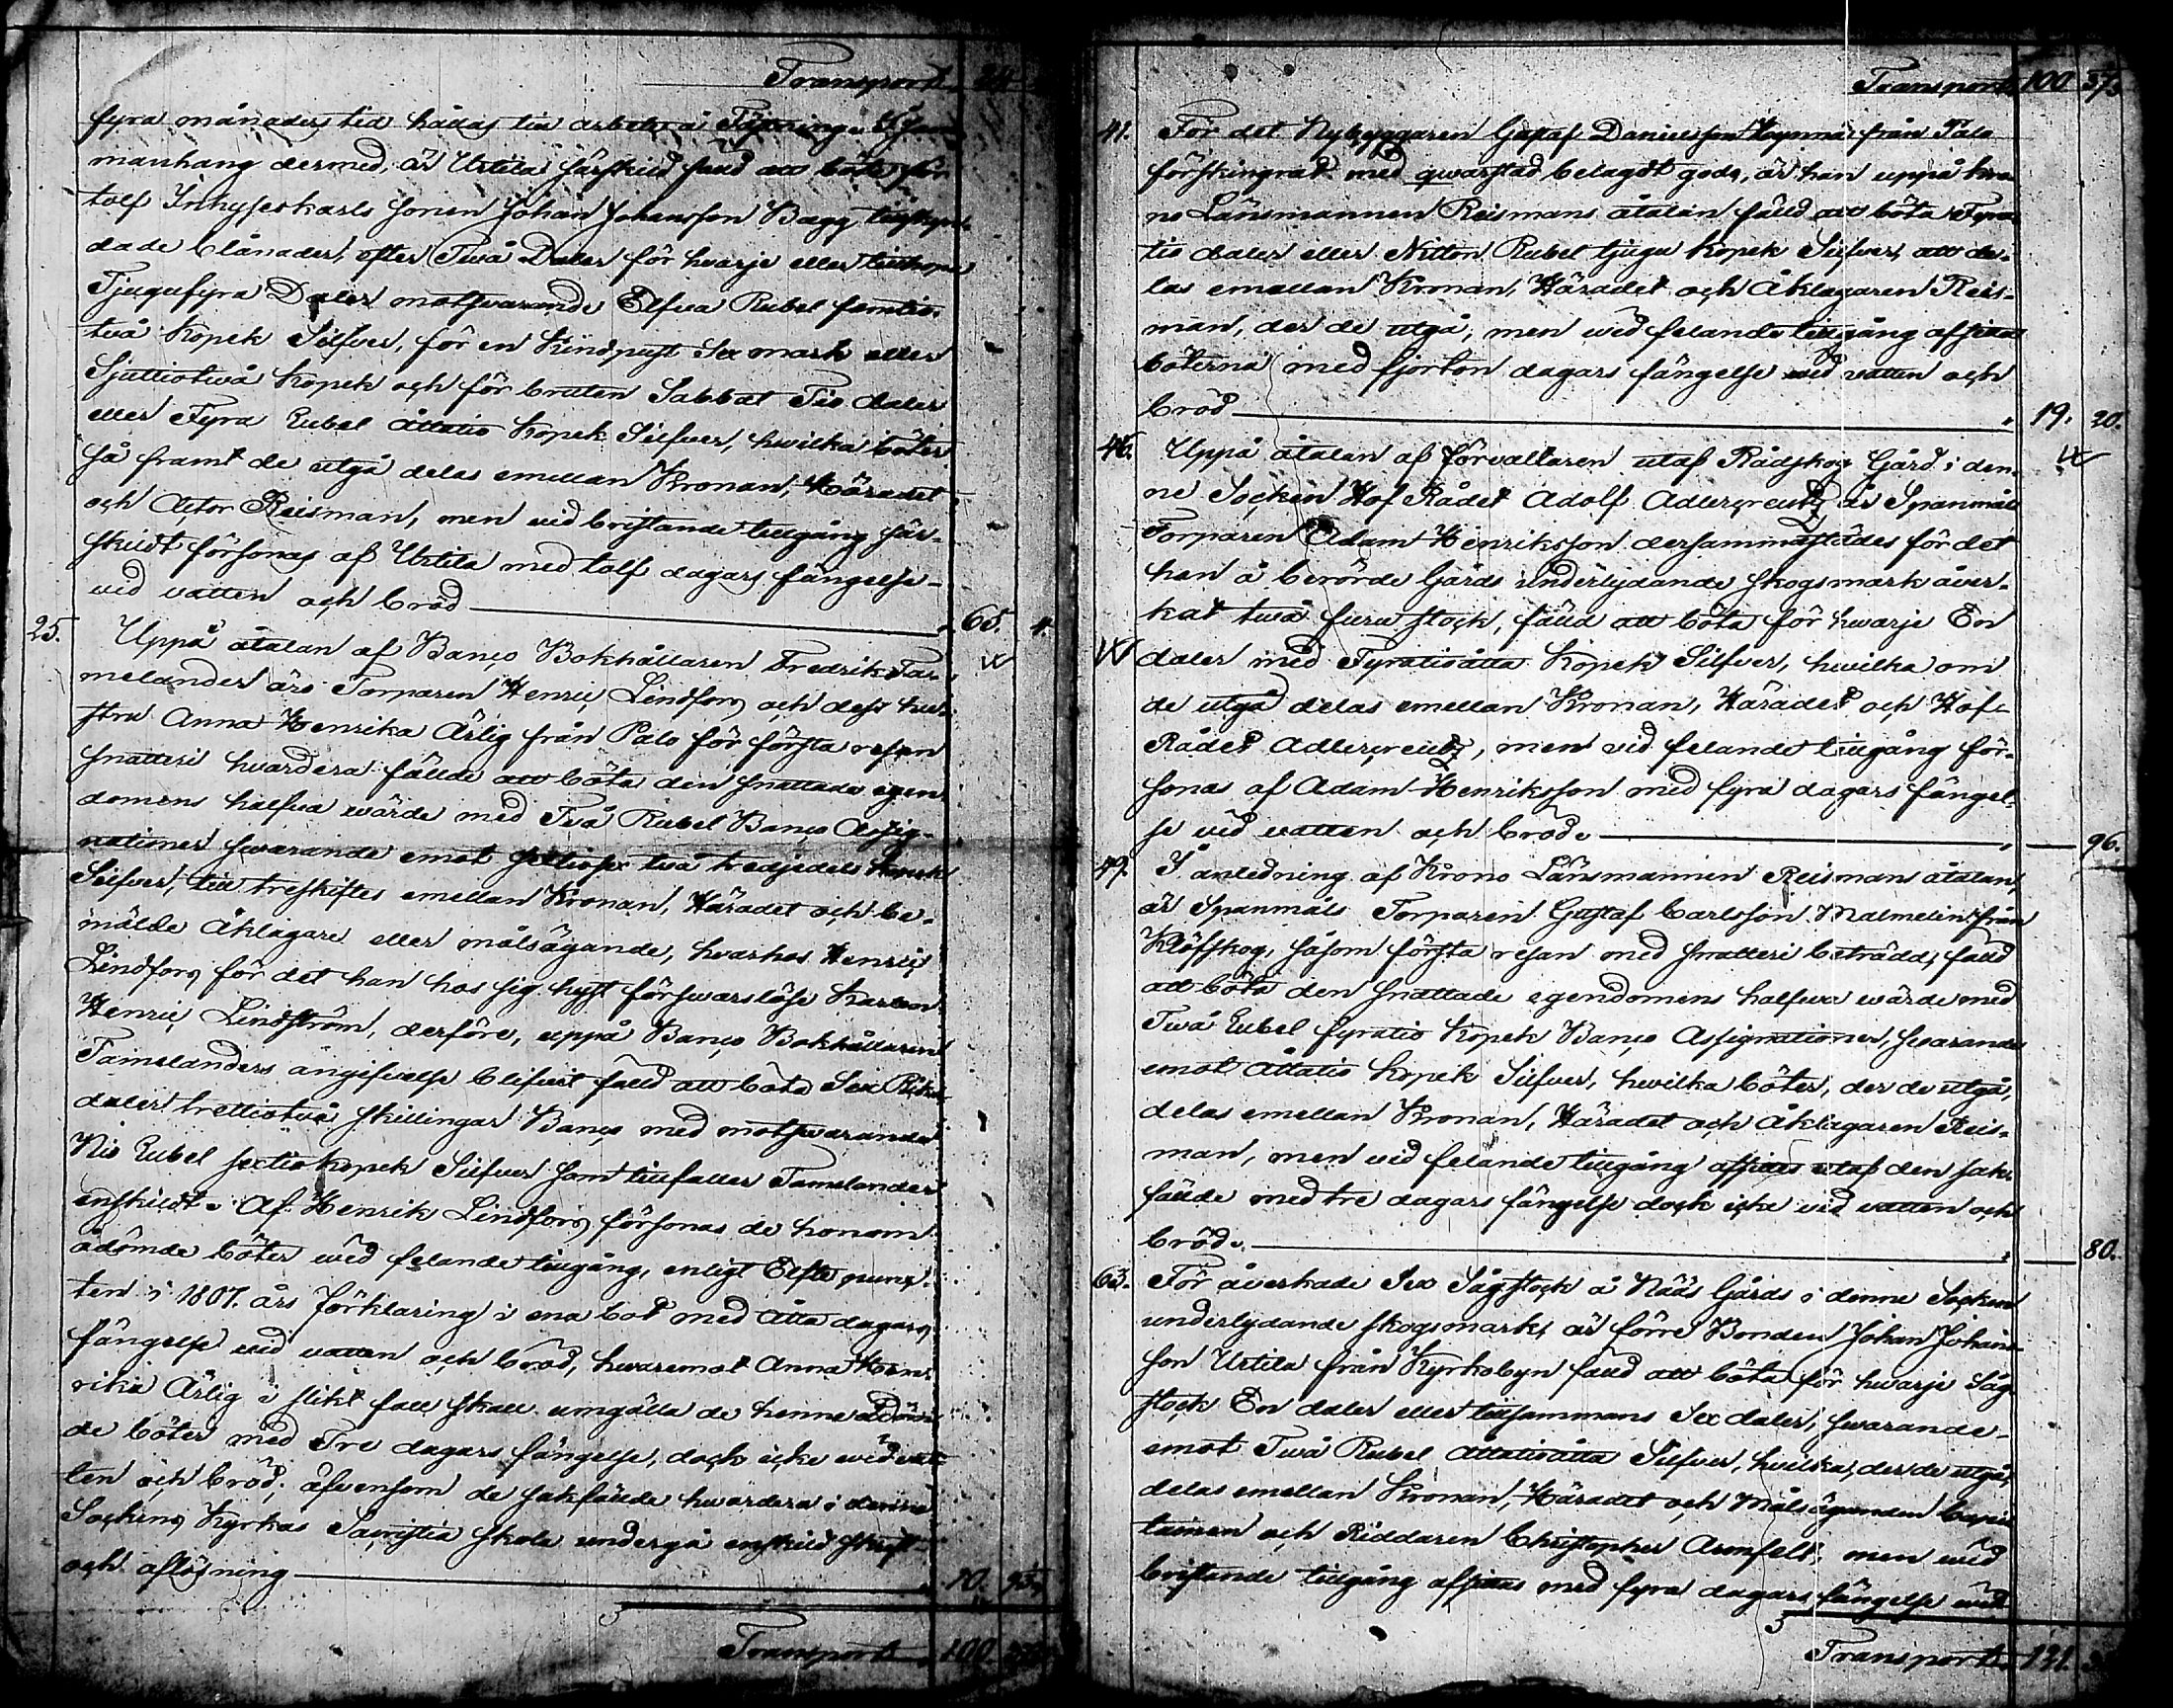 Transport 24
fyra månaders tid hållas till arbete å Fästning. I Sam
manhang dermed, är Urtila särskild fälld att böta för
tolf Inhyseskarls sonen Johan Johansson Bagg
dade blånader, efter Två Daler för hvarje eller tillhopa
Tjugufyra Daler motsvarande Elfva Rubel femtio
två Kopek Silfver, för en Kindpust Sex mark eller
Sjuttiotvå Kopek och för bruten Sabbat Tio daler
eller Fyra Rubel Åttatio Kopek Silfver, hvilka böter
så framt de utgå delas emellan Kronan, Häradet
och Actor Reisman, men ved bristande tillgång sär-
skildt försonas af Urtila med tolf dagars fängelse
ved vatten och bröd 65. 4.
25. Uppå åtalan af Banco Bokhållaren Fredrik Ta-
melander äro Torparen Henric Lindfors och dess hu-
stru Anna Henrika Ärlig från Palo för första resan
snatteri hvardera fällde att böta den snattade egen
domens halfva wärde med Två Rubel Banco Assig-
nationer svarande emot femtiosex två tredjedels Kopek
Silfver, till treskiftes emellan Kronan, Häradet och be-
mälde Åklagare eller målsägande, hvarhos Henric
Lindfors för det han hos sig hyst försvarslöse Karlen
Henric Lindström, derföre, uppå Banco Bokhållaren
Tamelanders angifvelse blifvit fälld att böta Sex Riks
daler trettiotvå skillingar Banco med motsvarande
Nio Rubel sextio kopek Silfver som tillfaller Tamelander
enskildt. Af Henrik Lindfors försonas de honom
ådömde böter wid felande tillgång, enligt Elfte punc-
ten i 1807. års Förklaring i ena bot med åtta dagars
fängelse vid vatten och bröd, hvaremot Anna Hen-
rika Ärlig i slikt fall skall umgälla de henne ådöm-
de böter med Tre dagars fängelse, dock icke wid vat-
ten och bröd; äfvensom de sakfällde hvardera i denne
Sockens Kyrkas Sacristia skola undergå enskild skrift
och aflösning 10.
Transport 100.
Transport 100 37.
41. För det Nybyggaren Gustaf Danielsson från Palo
förskingrat med qwarstad belagdt gods, är han uppå Kro-
no Länsmannen Reismans åtalan fälld att böta Fyra
tio daler eller Nitton Rubel tjugu Kopek Silfver, att de-
las emellan Kronan, Häradet och Åklagaren Reis-
man, der de utgå, men wid felande tillgång afsittas
böterna med fjorton dagars fängelse wid vatten och
bröd 19. 20.
46. Uppå åtalan af Förvaltaren utaf Rådskog Gård i den-
ne Socken Hof Rådet Adolf Adlercreutz är Spanmåls
Torparen Adam Henriksson dersammastädes för det
han å berörde Gårds underlydande skogsmark åver-
kat två furu stock, fälld att böta för hwarje En
daler med Fyratioåtta Kopek Silfver, hwilka om
de utgå delas emellan Kronan, Häradet och Hof-
Rådet Adlercreutz, men vid felande tillgång för-
sonas af Adam Henriksson med fyra dagars fängel-
se vid vatten och bröd. 96.
49. I anledning af Krono Länsmannen Reismans åtalan,
är Spanmåls Torparen Gustaf Carlsson Malmelin från
Klöfskog, såsom första resan med snatteri beträdd, fälld
att böta den snattade egendomens halfva wärde med
Två Rubel fyratio Kopek Banco Assignationer, svarande
emot Åttatio Kopek Silfver, hwilka böter, der de utgå,
delas emellan Kronan, Häradet och Åklagaren Reis-
man, men ved felande tillgång afsittes utaf den sak-
fällde med tre dagars fängelse dock icke vid vatten och
bröd. 80.
63. För åverkade Sex Sågstock å Nääs Gårds i denne Socken
underlydande skogsmark, är förre Bonden Johan Johans-
son Urtila från Kyrkobyn fälld att böta för hwarje Såg
stock En daler eller tillsammans Sex daler, svarande
emot Två Rubel Åttatioåtta Silfver, hvilka, der de utgå,
delas emellan Kronan, Häradet och Målsäganden Capi-
tainen och Riddaren Christopher Armfelt, men wid
bristande tillgång afsittas med fyra dagars fängelse wid
Transport 121.